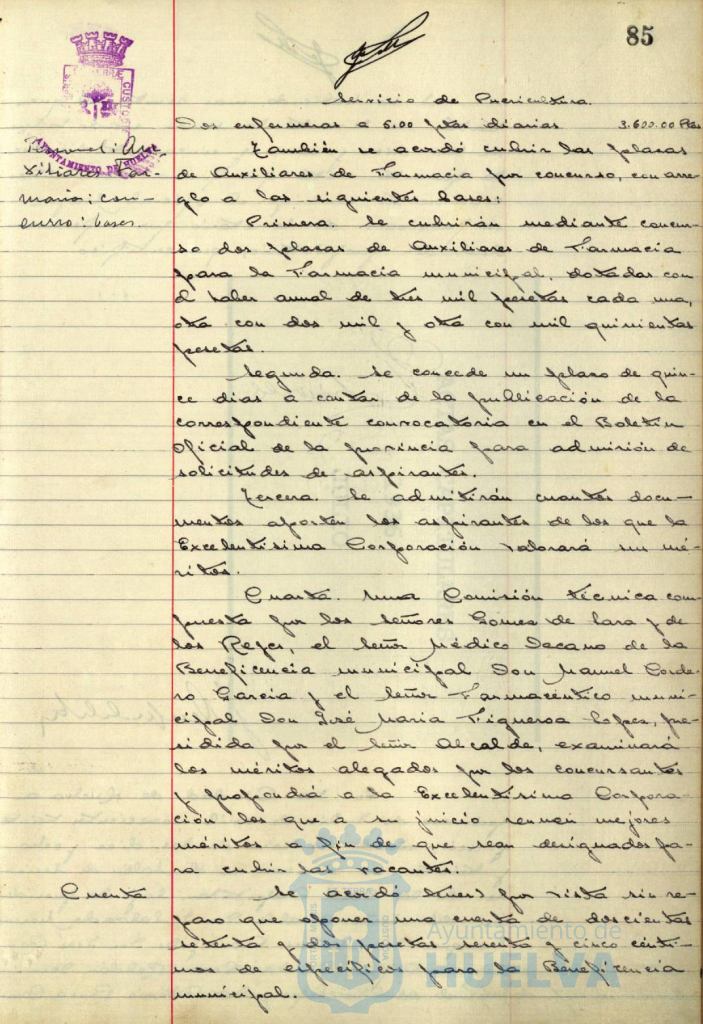 85
Servicio de Puericultura.
Dos enfermeras a 5.00 ptas diarias 3.600.00 Ptas
Personal: Au-
xiliares Far-
macia; con-
curso: bases.
También se acordó cubrir las plazas
de Auxiliares de Farmacia por concurso, con arre-
glo a las siguientes bases:
Primera. Se cubrirán mediante concur-
so dos plazas de Auxiliares de Farmacia
para la Farmacia municipal, dotadas con
el haber anual de tres mil pesetas cada una,
otra con dos mil y otra con mil quinientas
pesetas.
Segunda. Se concede un plazo de quin-
ce dias a contar de la publicación de la
correspondiente convocatoria en el Boletín
Oficial de la provincia para admisión de
solicitudes de aspirantes.
Tercera. Se admitirán cuantos docu-
mentos aporten los aspirantes de los que la
Excelentísima Corporación valorará sus mé-
ritos.
Cuarta. Una Comisión técnica com-
puesta por los señores Gomez de Lara y de
los Reyes, el señor Médico Decano de la
Beneficencia municipal Don Manuel Corde-
ro García y el señor Farmacéutico muni-
cipal Don José María Figueroa Lopez, pre-
sidida por el señor Alcalde, examinará
los méritos alegados por los concursantes
y propondrá a la Excelentísima Corpora-
ción los que a su juicio reunan mejores
méritos a fin de que sean designados pa-
ra cubrir las vacantes.
Cuenta
Se acordó tener por vista sin re-
paro que oponer una cuenta de doscientas
setenta y dos pesetas sesenta y cinco cénti-
mos de específicos para la Beneficencia
municipal.
AYUNTAMIENTO DE HUELVA
Ayuntamiento de
HUELVA